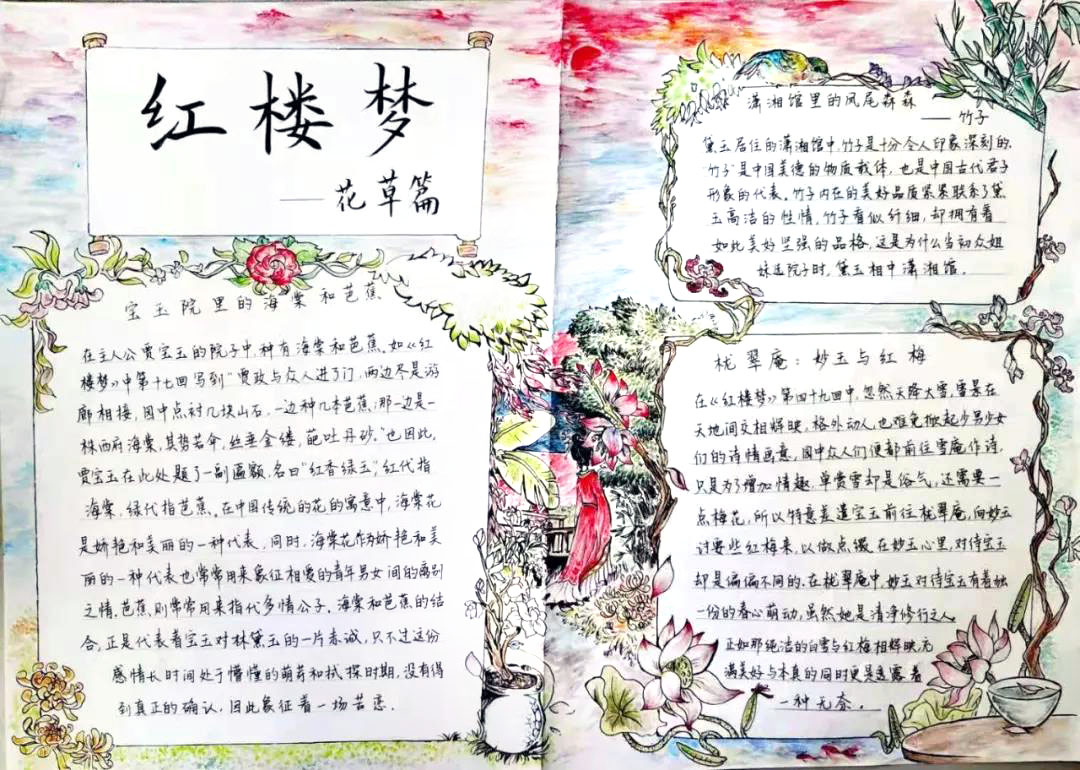 红楼梦
——花草篇
宝玉院里的海棠和芭蕉
在主人公贾宝玉的院子中,种有海棠和芭蕉。如《红
楼梦》中第十七回写到“贾政与众人进了门,两边尽是游
廊相接,园中点衬几块山石,一边种几本芭蕉;那一边是一
株西府海棠,其势若伞,丝垂金缕,葩吐丹砂。”也因此,
贾宝玉在此处题了一副匾额,名曰“红香绿玉”,红代指
海棠,绿代指芭蕉。在中国传统的花的寓意中,海棠花
是娇艳和美丽的一种代表,同时,海棠花作为娇艳和美
丽的一种代表也常常用来象征相爱的青年男女间的离别
之情。芭蕉,则常常用来指代多情公子。海棠和芭蕉的结
合,正是代表着宝玉对林黛玉的一片赤诚,只不过这份
感情长时间处于懵懂的萌芽和试探时期,没有得
到真正的确认,因此象征着一场苦恋.
潇湘馆里的凤尾森森
——竹子
黛玉居住的潇湘馆中,竹子是十分令人印象深刻的.
竹子是中国美德的物质载体,也是中国古代君子
形象的代表。竹子内在的美好品质紧紧联系了黛
玉高洁的性情。竹子看似纤细,却拥有着
如此美好坚强的品格,这是为什么当初众姐
妹选院子时,黛玉相中潇湘馆.
栊翠庵:妙玉与红梅
在《红楼梦》第四十九回中,忽然天降大雪,雪景在
天地间交相辉映,格外动人,也难免掀起少男少女
们的诗情画意,园中众人们便都前往雪庵作诗,
只是为了增加情趣,单赏雪却是俗气,还需要一
点梅花,所以特意差遣宝玉前往栊翠庵,向妙玉
讨要些红梅来,以做点缀,在妙玉心里,对待宝玉
却是偏偏不同的,在栊翠庵中,妙玉对待宝玉有着独
一份的春心萌动,虽然她是清净修行之人,
正如那纯洁的白雪与红梅相辉映,充
满美好与本真的同时更是透露着
一种无奈.